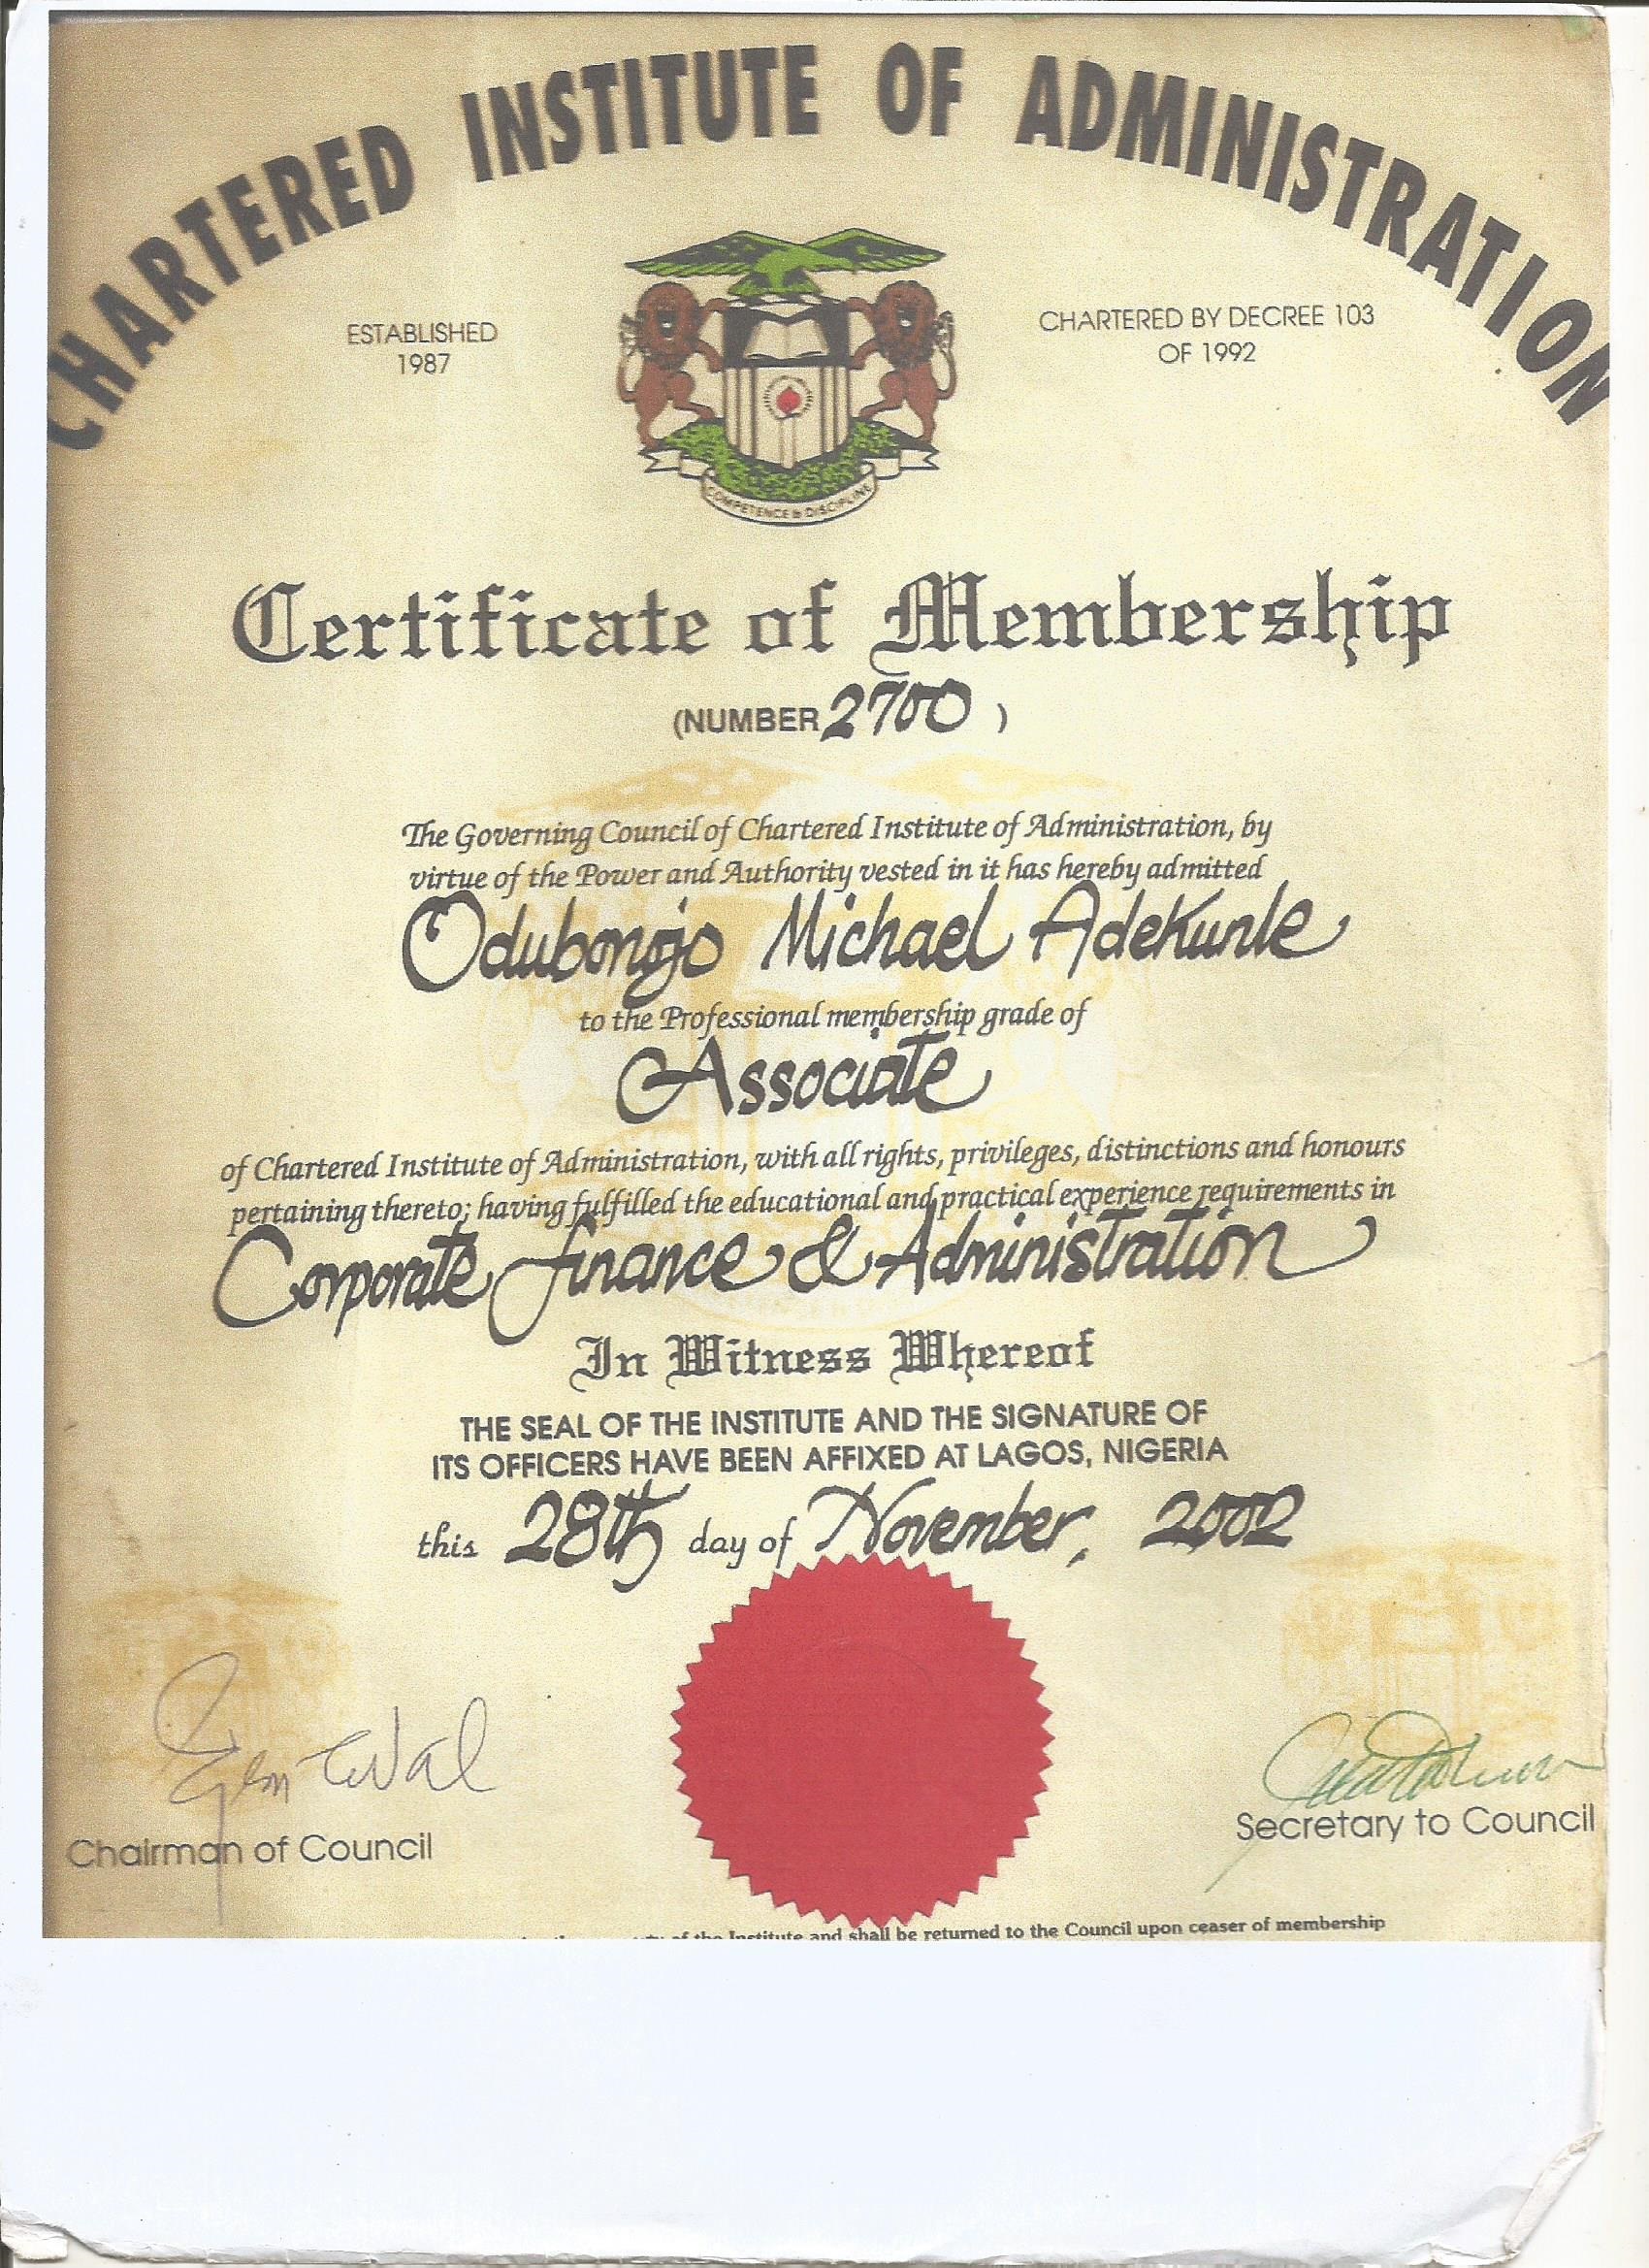 CHARTERED INSTITUTE OF ADMINISTRATION
ESTABLISHED
1987
CHARTERED BY DECREE 103
OF 1992
COMPETENCE & DISCIPLINE
Certificate of Membership
(NUMBER 2700 )
The Governing Council of Chartered Institute of Administration, by
virtue of the Power and Authority vested in it has hereby admitted
Odubonojo Michael Adekunle
to the Professional membership grade of
Associate
of Chartered Institute of Administration, with all rights, privileges, distinctions and honours
pertaining thereto; having fulfilled the educational and practical experience requirements in
Corporate Finance & Administration
In Witness Whereof
THE SEAL OF THE INSTITUTE AND THE SIGNATURE OF
ITS OFFICERS HAVE BEEN AFFIXED AT LAGOS, NIGERIA
this 28th day of November, 2002
Chairman of Council
Secretary to Council
of the Institute and shall be returned to the Council upon ceaser of membership